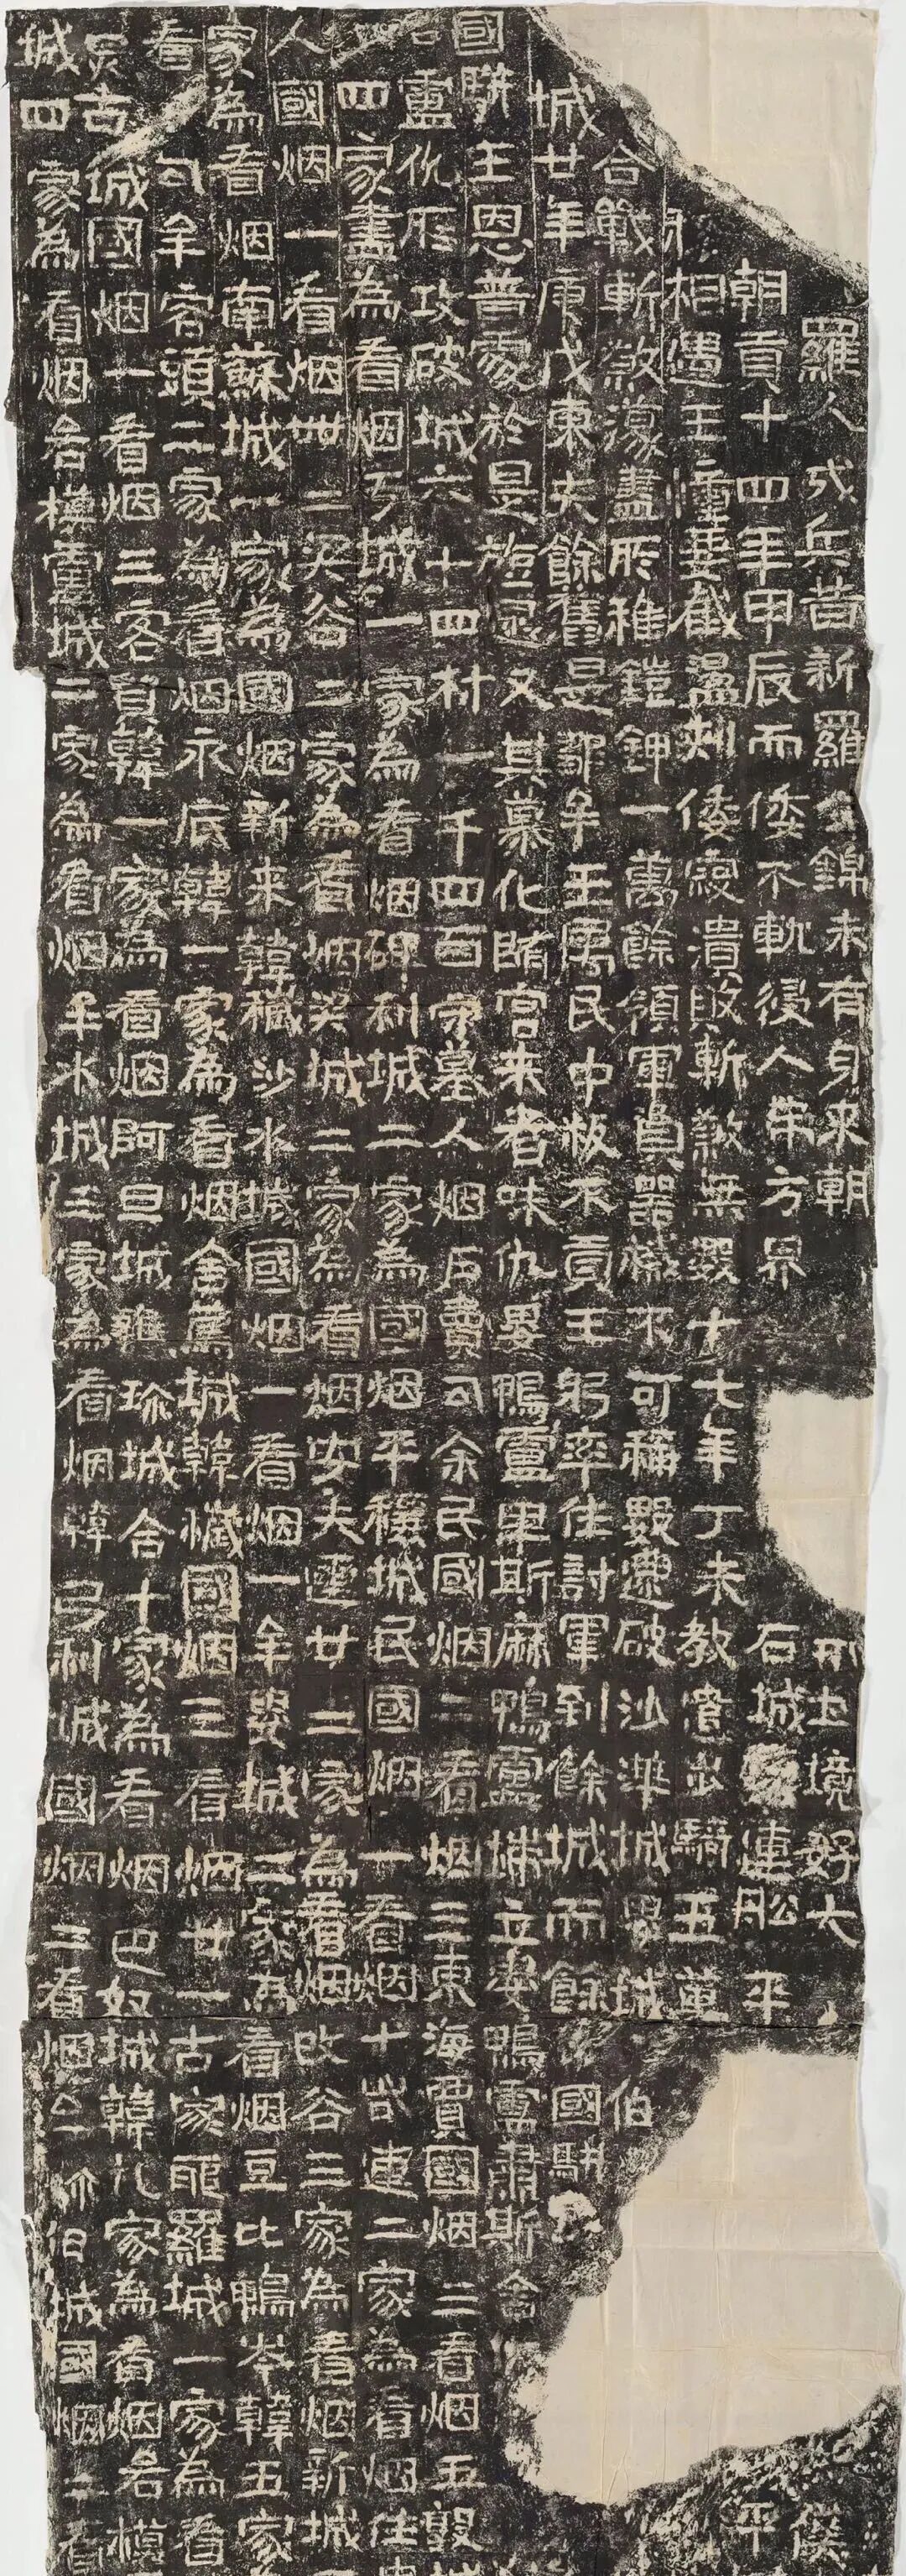 羅人戍兵昔新羅錦未有身來朝土境好太僕
朝貢十四年甲辰而倭不軌侵入帶方界石城連船平
相遇王幢要截盪刺倭寇潰敗斬煞無數十七年丁未教遣步騎五萬
合戰斬煞蕩盡所獲鎧鉀一萬餘領軍資器械不可稱數還破沙溝城婁城
城廿年庚戌東夫餘舊是鄒牟王屬民中叛不貢王躬率往討軍到餘城而餘國駭
國駢王恩普覆於是旋還又其慕化隨官來者味仇婁鴨盧卑斯麻鴨盧椯立婁鴨盧肅斯舍
盧凡所攻破城六十四村一千四百守墓人烟戶賣句余民國烟二看烟三東海賈國烟三看烟五敦城
四家盡為看烟于城一家為看烟碑利城二家為國烟平穰城民國烟一看烟十訾連二家為看烟住婁
人國烟一看烟卌二梁谷二家為看烟梁城二家為看烟安夫連廿二家為看烟改谷三家為看烟新城
家為看烟南蘇城一家為國烟新來韓穢沙水城國烟一看烟一牟婁城二家為看烟豆比鴨岑韓五家
看勾牟客頭二家為看烟永底韓一家為看烟舍蔦城韓穢國烟三看烟廿一古家耶羅城一家為看
炅古城國烟一看烟三客賢韓一家為看烟阿旦城雜珍城合十家為看烟巴奴城韓九家為看烟各模
城四家為看烟各模盧城二家為看烟牟水城三家為看烟幹弓利城國烟二看烟三弥旧城國烟二看